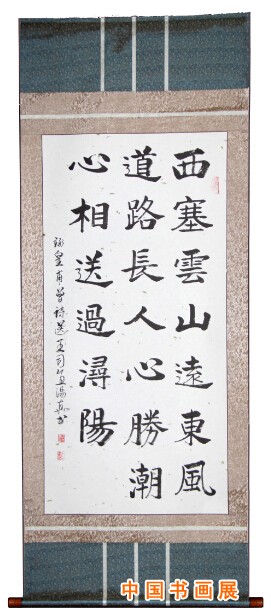 西塞雲山遠東風
道路長人心勝潮
心相送過潯陽
錄皇甫曾詩送王司直
中国书画展